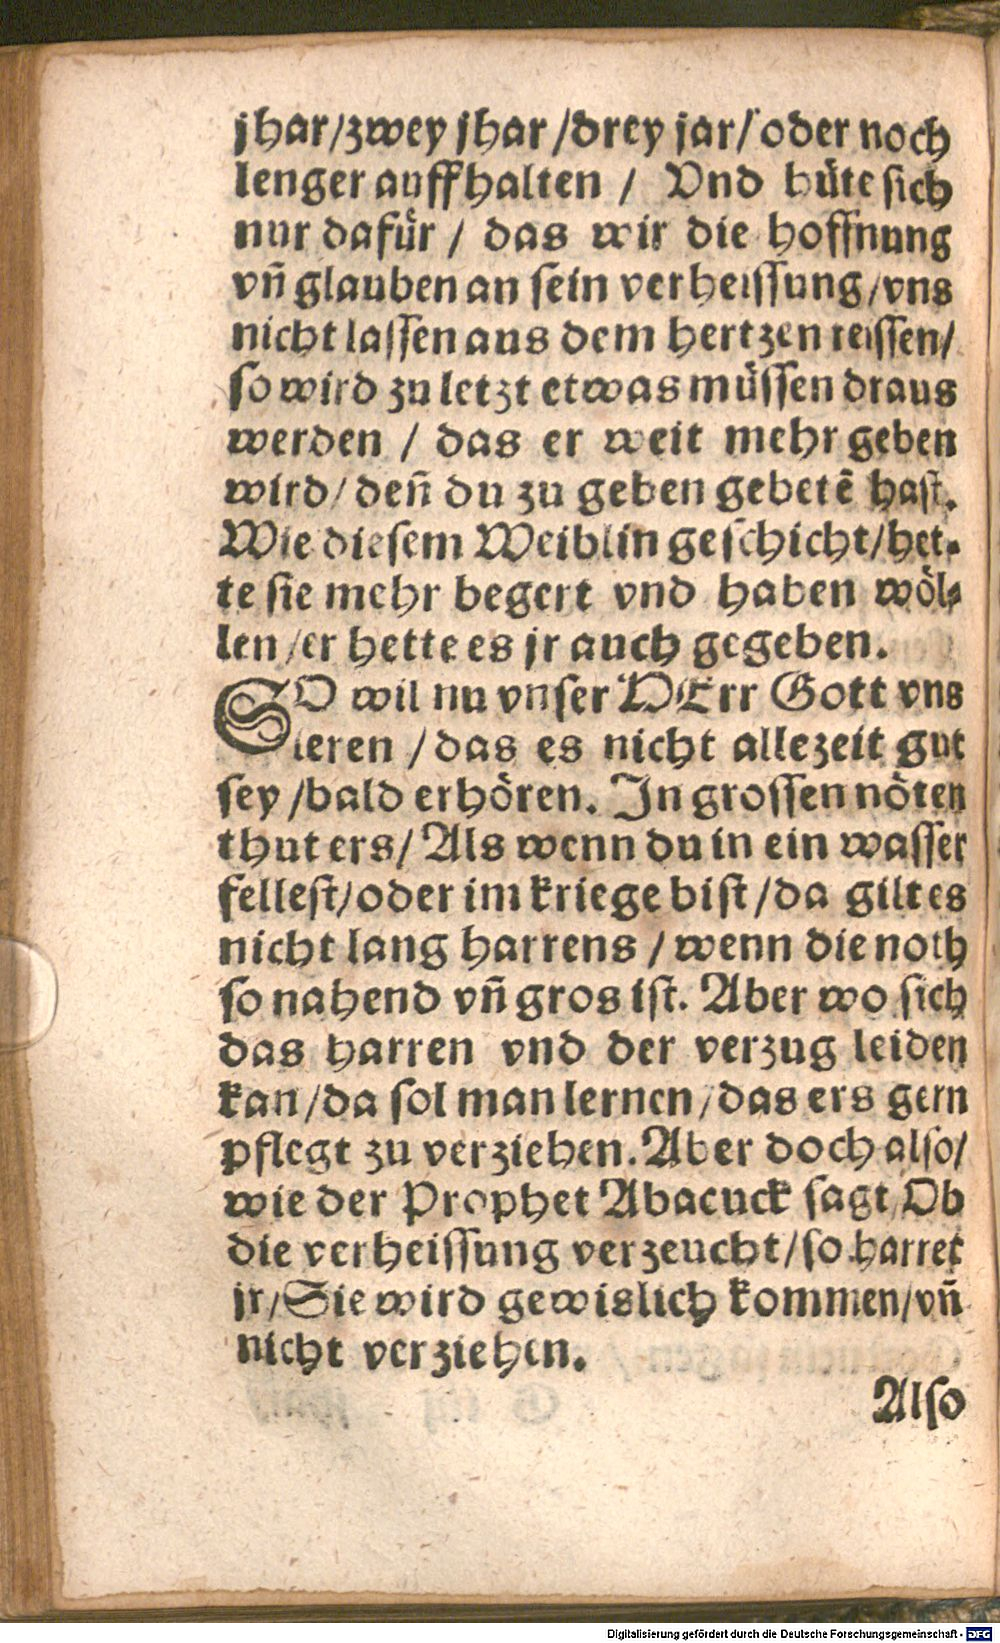 jhar/zwey jhar/drey jar/oder noch
lenger auffhalten / Vnd hüte sich
nur dafür / das wir die hoffnung
vñ glauben an sein verheissung/vns
nicht lassen aus dem hertzen reissen/
so wird zu letzt etwas müssen draus
werden / das er weit mehr geben
wird/ deñ du zu geben gebetē hast.
Wie diesem Weiblin geschicht/het⸗
te sie mehr begert vnd haben wöl⸗
len/er hette es jr auch gegeben.
SO wil nu vnser HErr Gott vns
leren /das es nicht allezeit gut
sey /bald erhören. In grossen nöten
thut ers/ Als wenn du in ein wasser
fellest/oder im kriege bist/da gilt es
nicht lang harrens /wenn die noth
so nahend vñ gros ist. Aber wo sich
das harren vnd der verzug leiden
kan/da sol man lernen/das ers gern
pflegt zu verziehen. Aber doch also/
wie der Prophet Abacuck sagt/Ob
die verheissung verzeucht/so harret
jr/Sie wird gewislich kommen/vñ
nicht verziehen.
Also
Digitalisierung gefördert durch die Deutsche Forschungsgemeinschaft - DFG